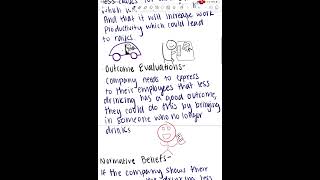 And that it will increase work
Productivity which could lead
to raises.
Outcome Evaluations-
Company needs to express
to their employees that less
drinking has a good outcome,
they could do this by bringing
in someone who no longer
drinks
Normative Beliefs-
If the company shows their